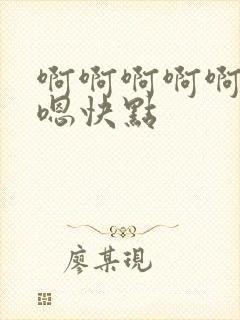 啊啊啊啊啊
嗯快點
廖某現